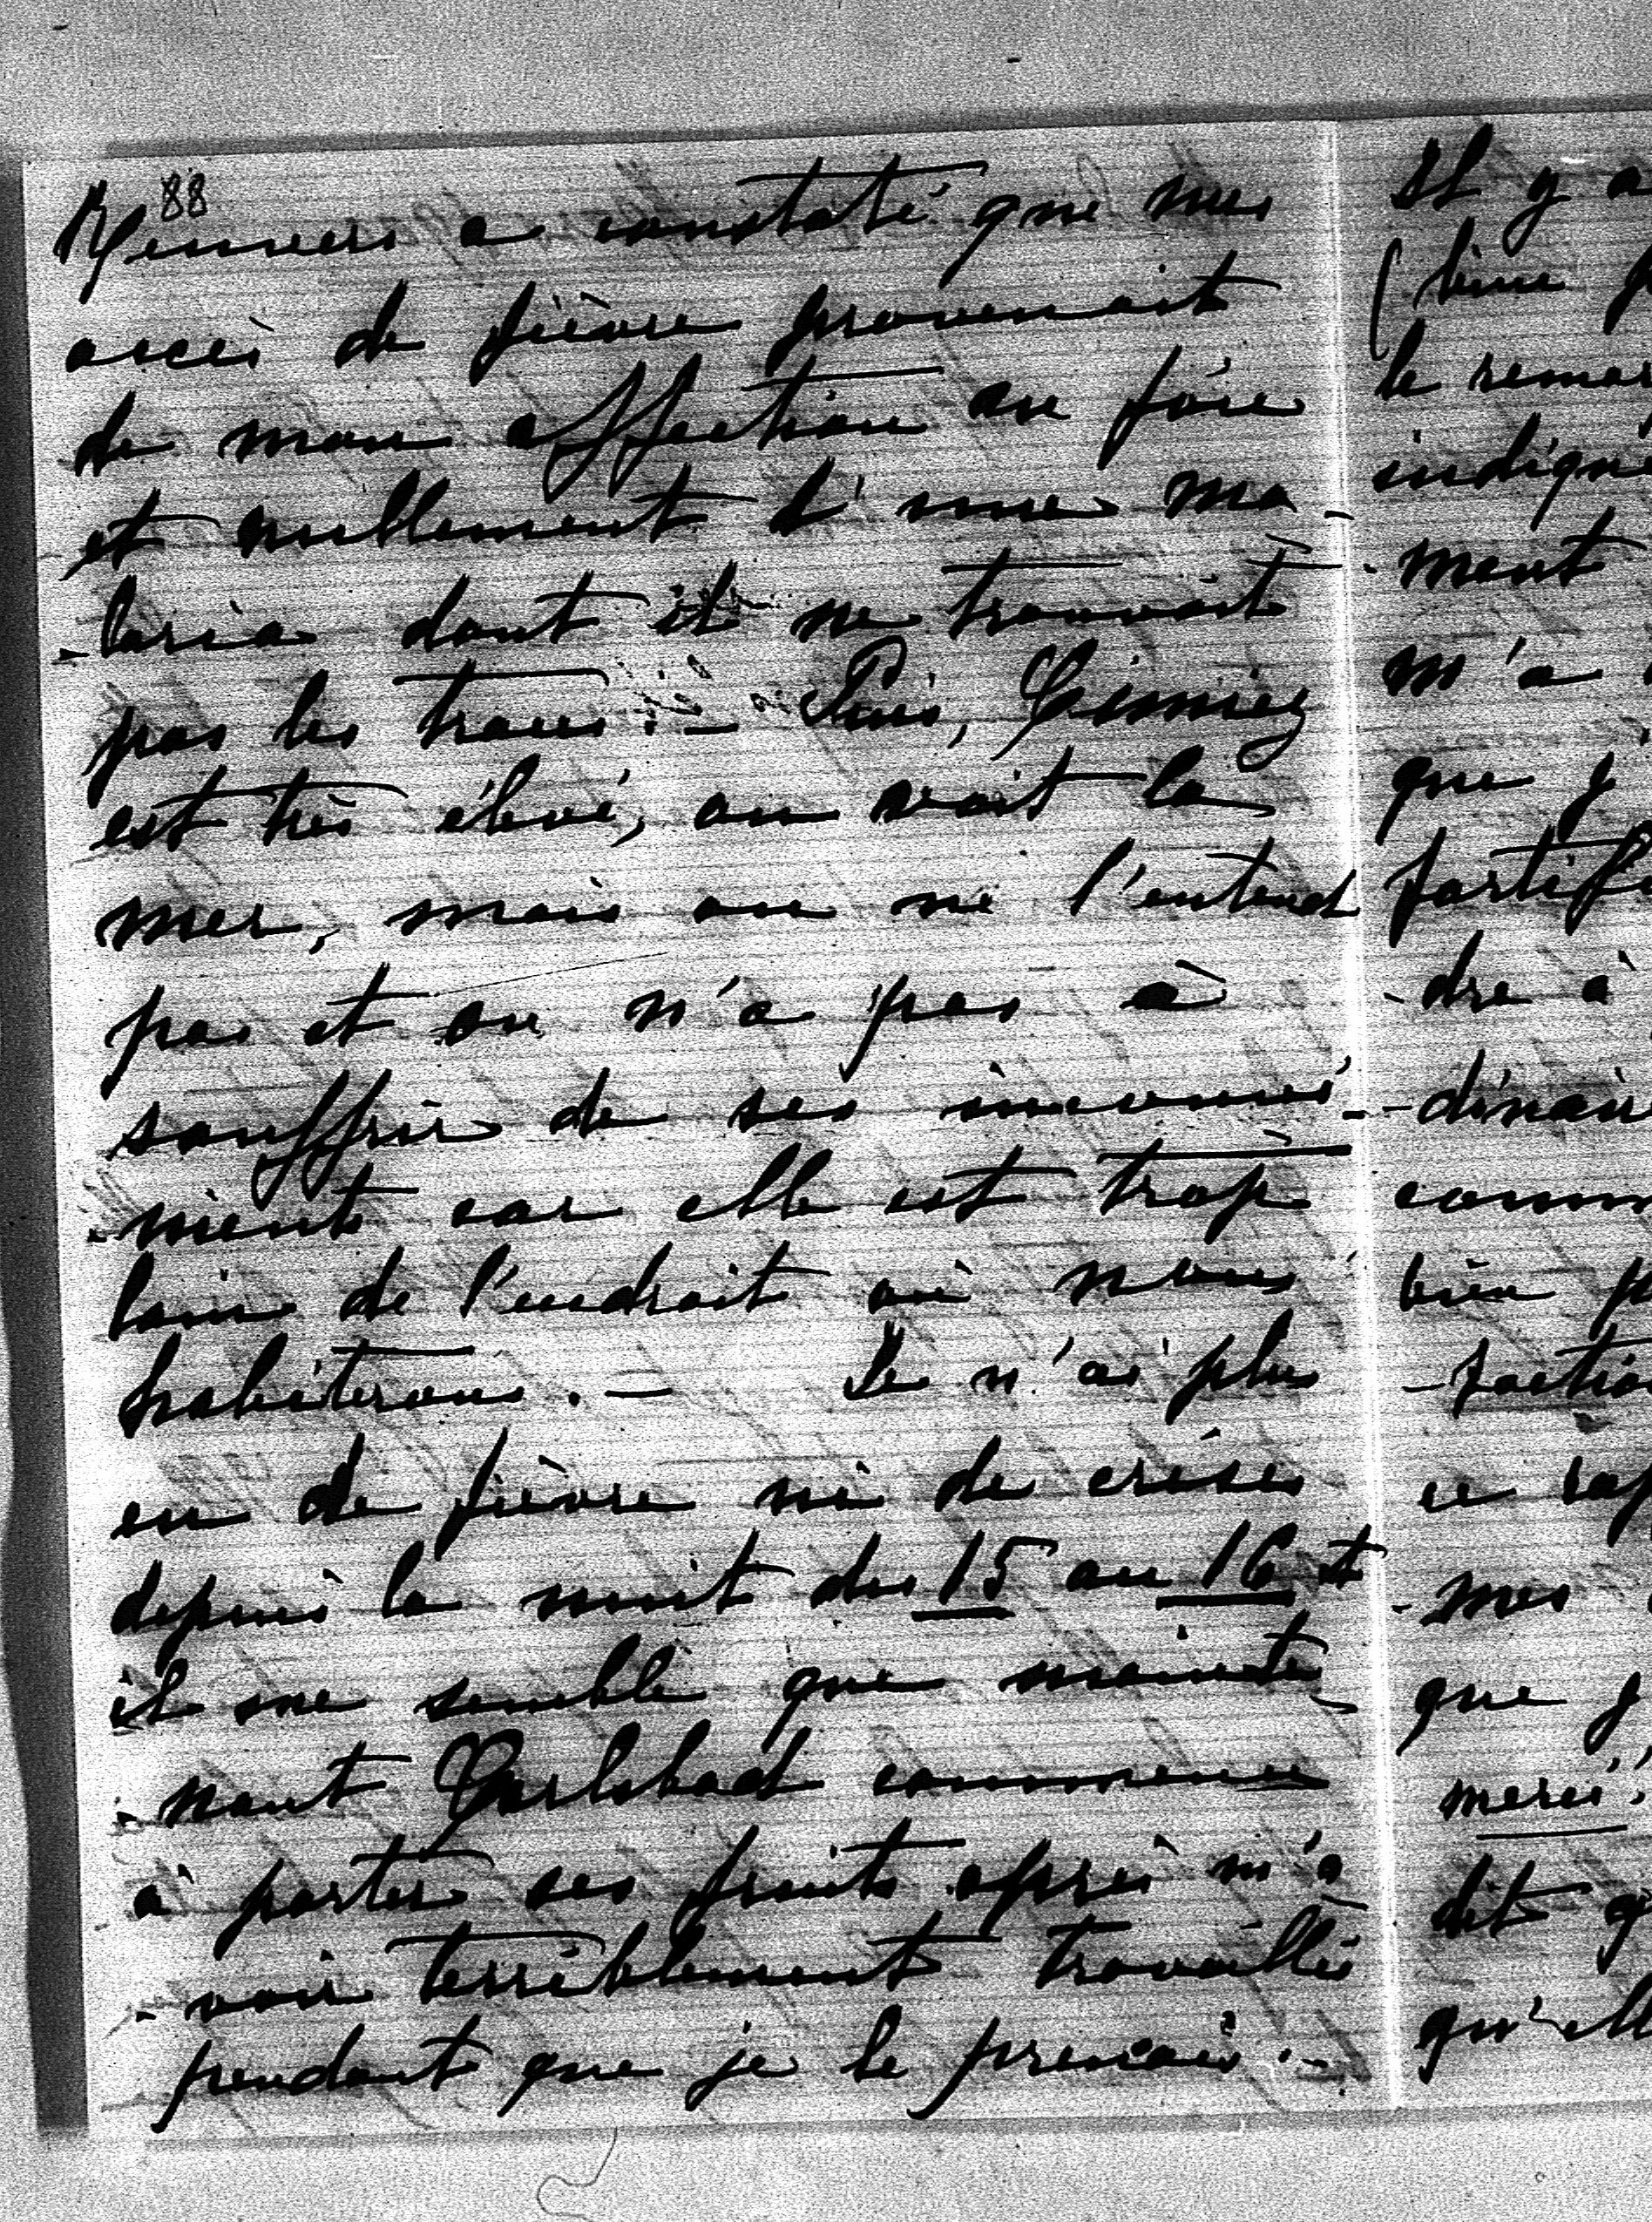 88
Renvers a constaté que mes
accès de fièvre provenait
de mon affection au foie
et nullement d'une ma-
-laria dont il ne trouvait
pas les traces. - Puis, Cimiez
est très élevé, on voit la
mer, mais on ne l'entend
pas et on n'a pas à
souffrir de ses inconvé-
-nients car elle est trop
loin de l'endroit où nous
habiterons. - Je n'ai plus
eu de fièvre ni de crises
depuis la nuit du 15 au 16 et
il me semble que mainte-
-nant Carlsbad commence
à porter ses fruits après m'a-
-voir terriblement travaillée
pendant que je le prenais. -
Il y a
(bien
le remar
indigne
-ment
m'a
que j'
fortifi
-dre à
-dinair
comm
bien p
-faction
ce
-mes
que j
merci!
dit q
qu'elle